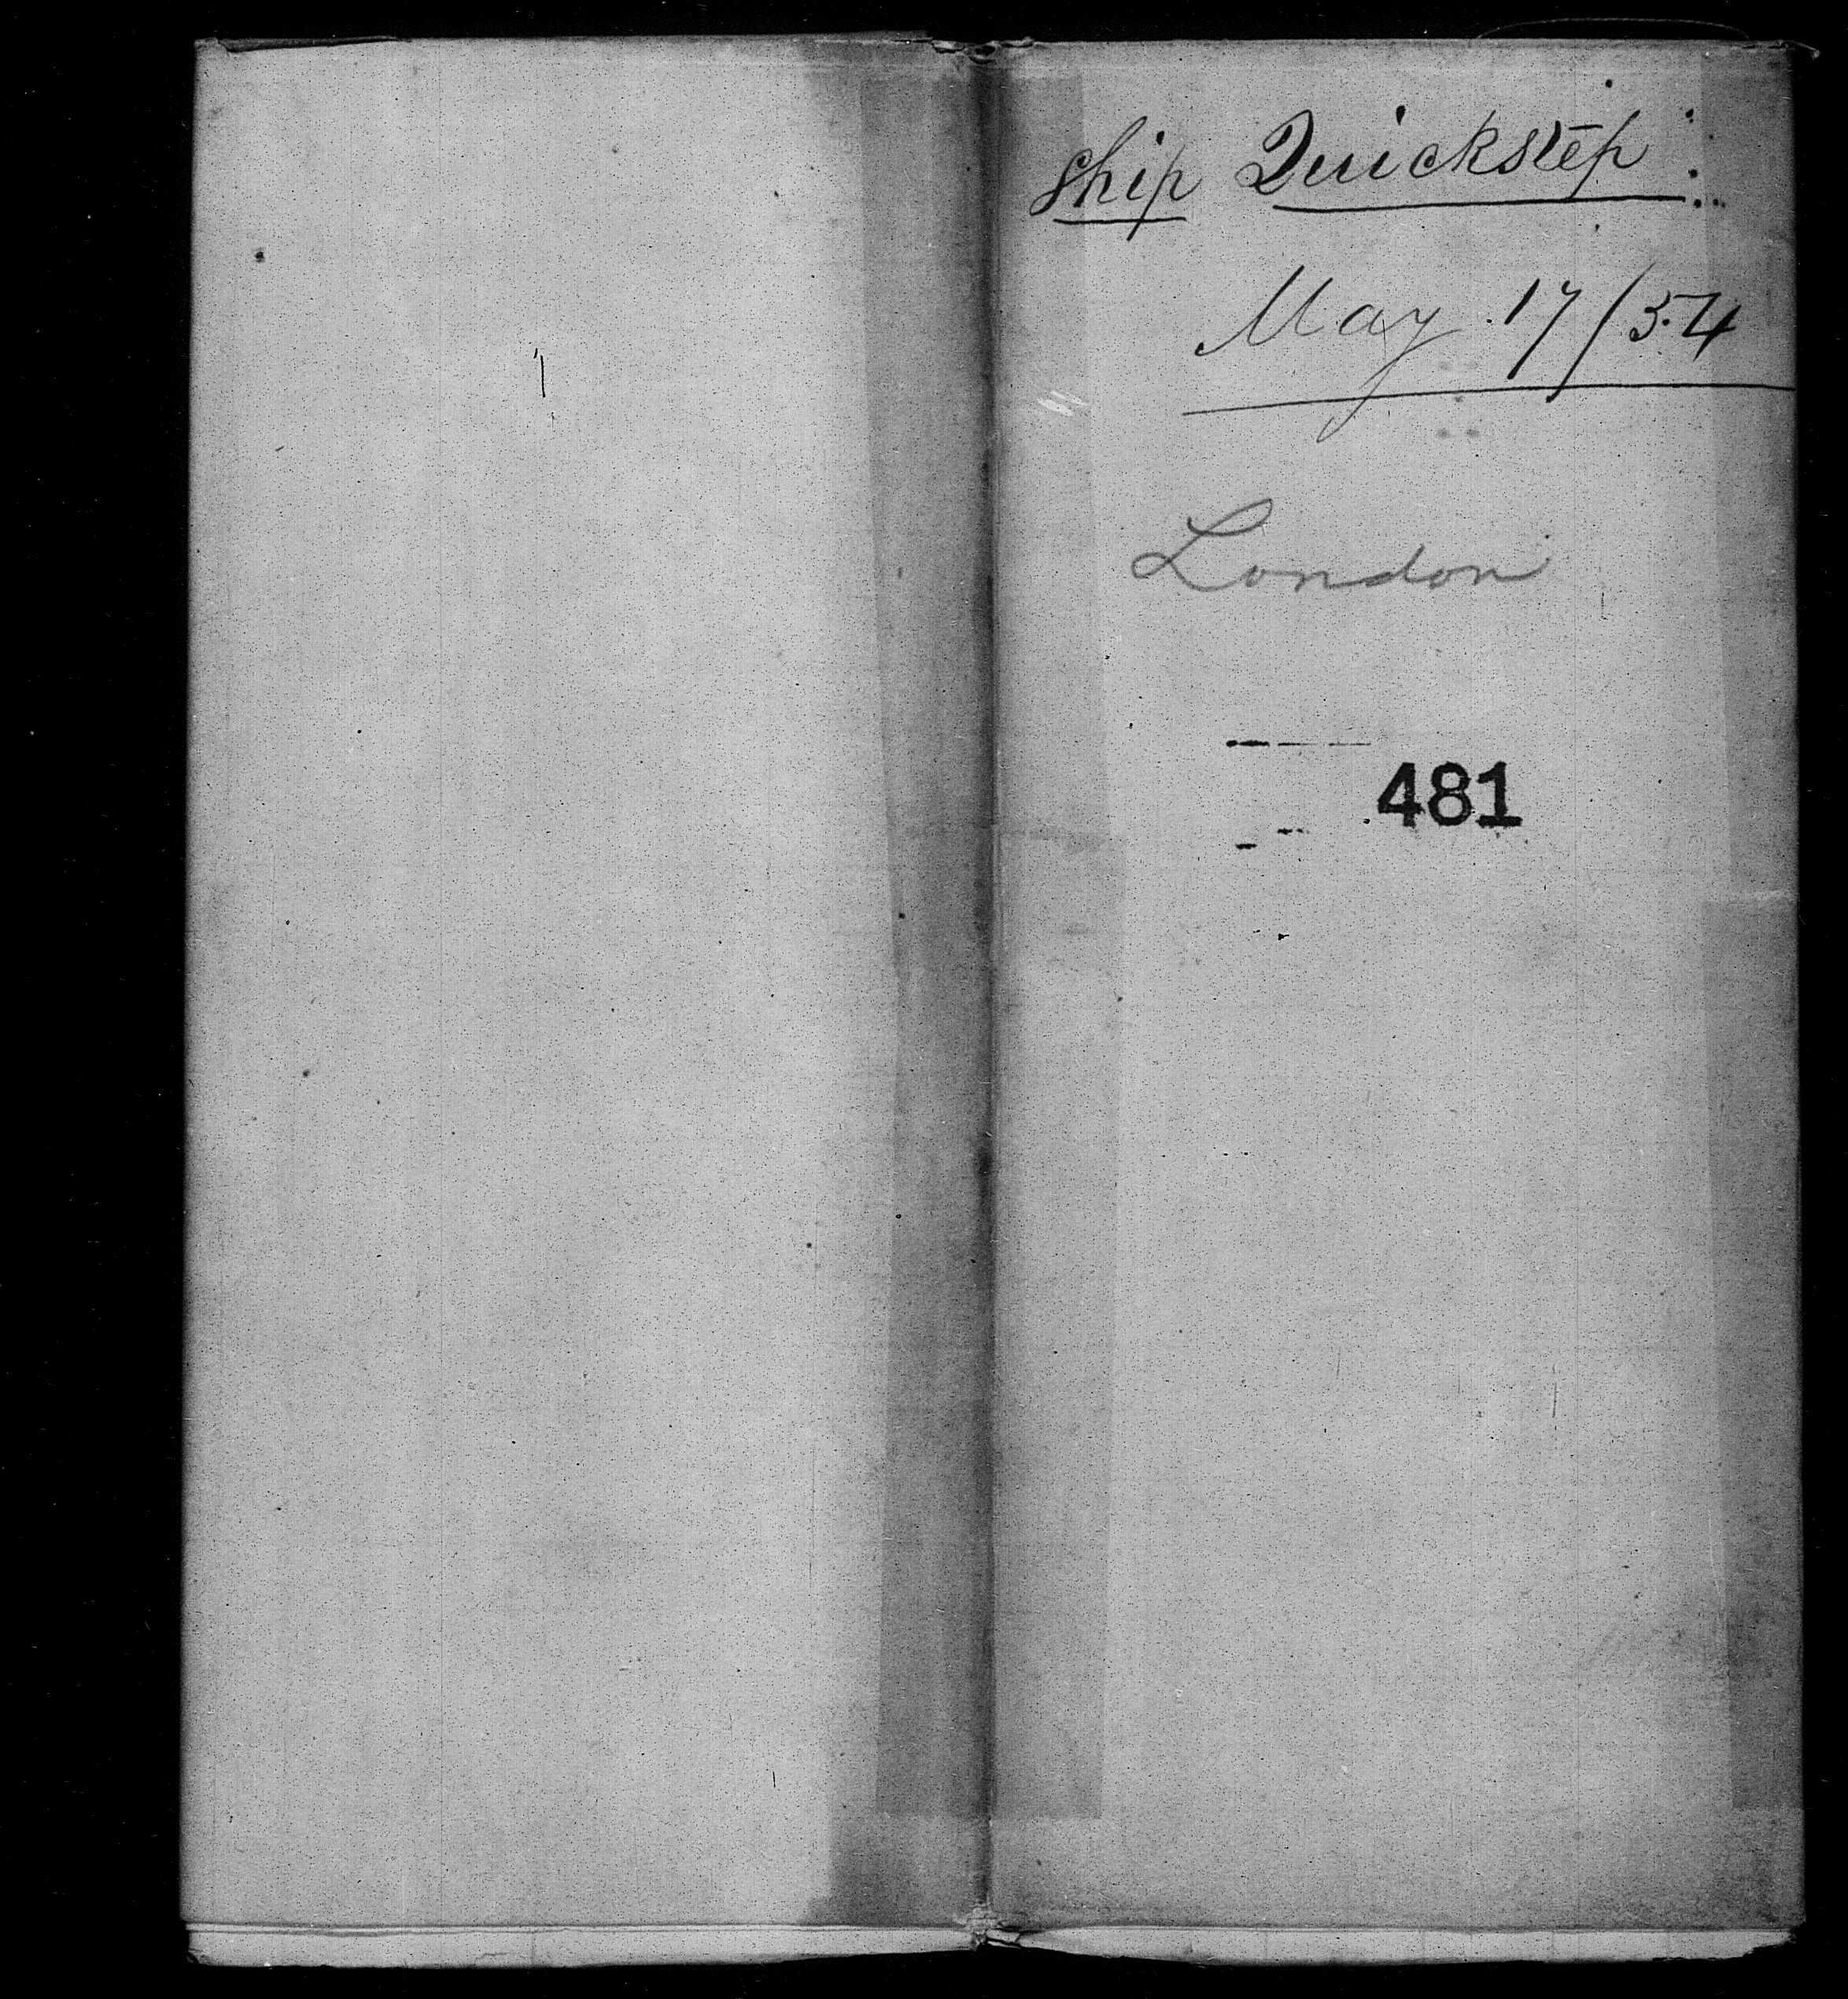 Ship Quickstep
May 17/54
London
481